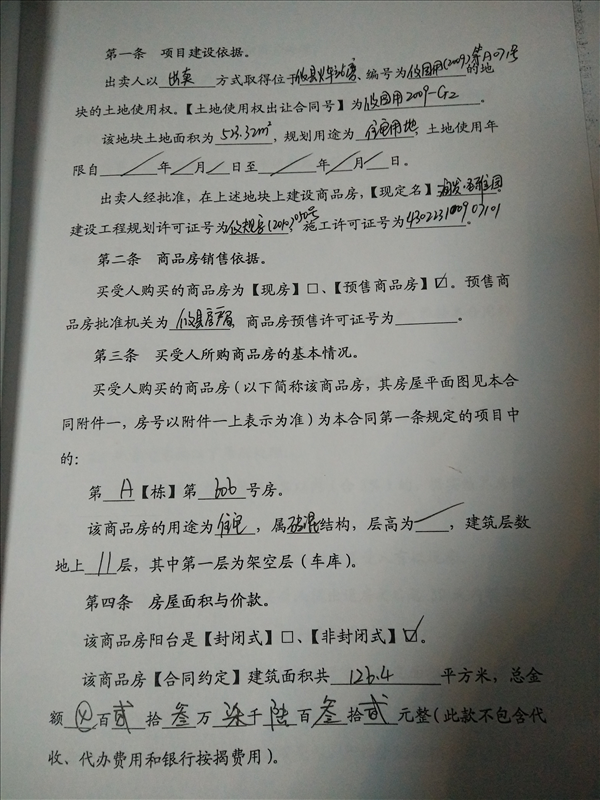 第一条　项目建设依据。
出卖人以 出卖 方式取得位于攸县火车站旁、编号为攸国用(2009)第A071号的地
块的土地使用权。【土地使用权出让合同号】为攸国用2009-G2。
该地块土地面积为 523.32m²，规划用途为 住宅用地，土地使用年
限自 / 年 / 月 / 日至 / 年 / 月 / 日。
出卖人经批准，在上述地块上建设商品房，【现定名】
建设工程规划许可证号为攸规房(2010)010号，施工许可证号为。
第二条　商品房销售依据。
买受人购买的商品房为【现房】□、【预售商品房】☑。预售商
品房批准机关为 攸县房产局，商品房预售许可证号为______。
第三条　买受人所购商品房的基本情况。
买受人购买的商品房（以下简称该商品房，其房屋平面图见本合
同附件一，房号以附件一上表示为准）为本合同第一条规定的项目中
的：
第 A 【栋】第 606 号房。
该商品房的用途为 住宅，属 砖混 结构，层高为 /，建筑层数
地上 11 层，其中第一层为架空层（车库）。
第四条　房屋面积与价款。
该商品房阳台是【封闭式】□、【非封闭式】☑。
该商品房【合同约定】建筑面积共 126.4 平方米，总金
额 ⊗ 百 贰 拾 叁 万 柒 千 陆 百 叁 拾 贰 元整（此款不包含代
收、代办费用和银行按揭费用）。